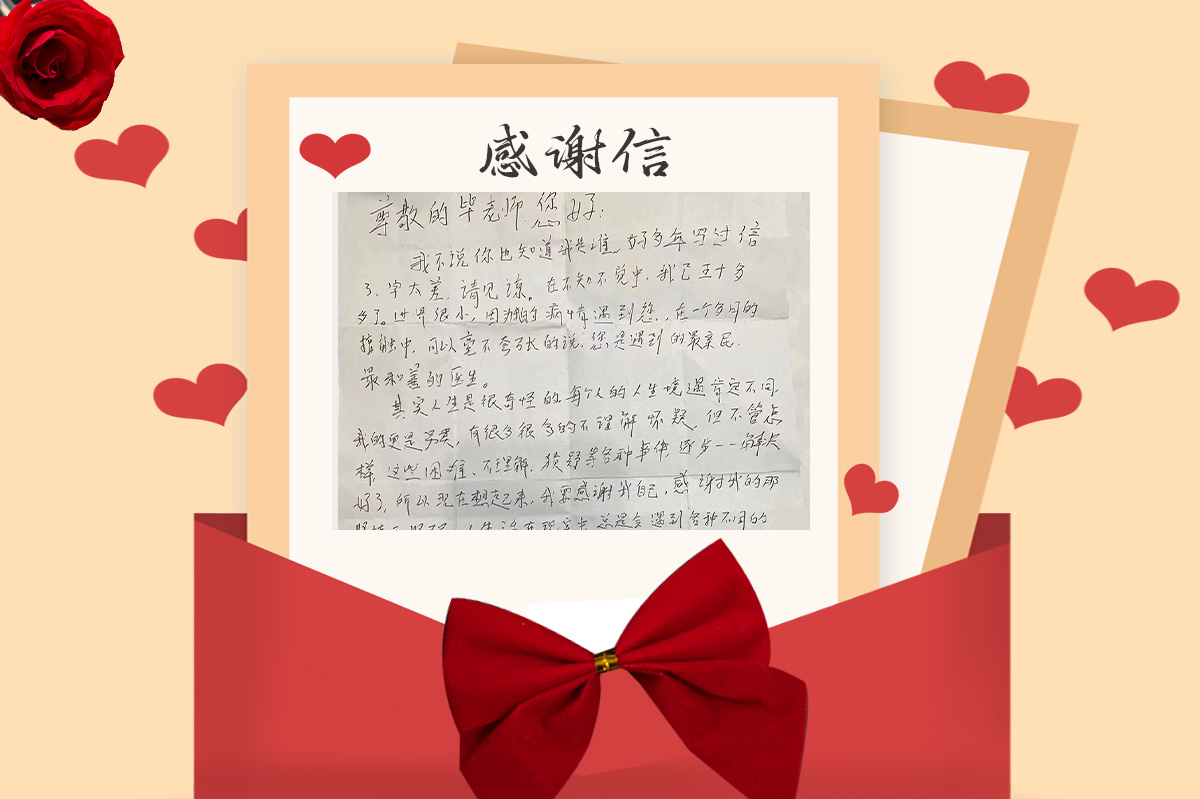 感谢信
尊敬的毕老师 您好:
我不说你也知道我是谁。好多年写过信
了,字太差,请见谅。在不知不觉中,我已五十多
多了。世界很小,因为我的病情遇到您,在一个多月的
接触中,可以毫不夸张的说,您是遇到的最亲民.
最和善的医生。
其实人生是很奇怪的每个人的人生境遇肯定不同
我的更是另类,有很多很多的不理解 怀疑,但不管怎
样,这些困难、不理解、猜疑等各种事情,逐步一一解决
好了,所以现在想起来,我要感谢我自己,感谢我的那
人生 在现实中 总是会遇到各种不同的